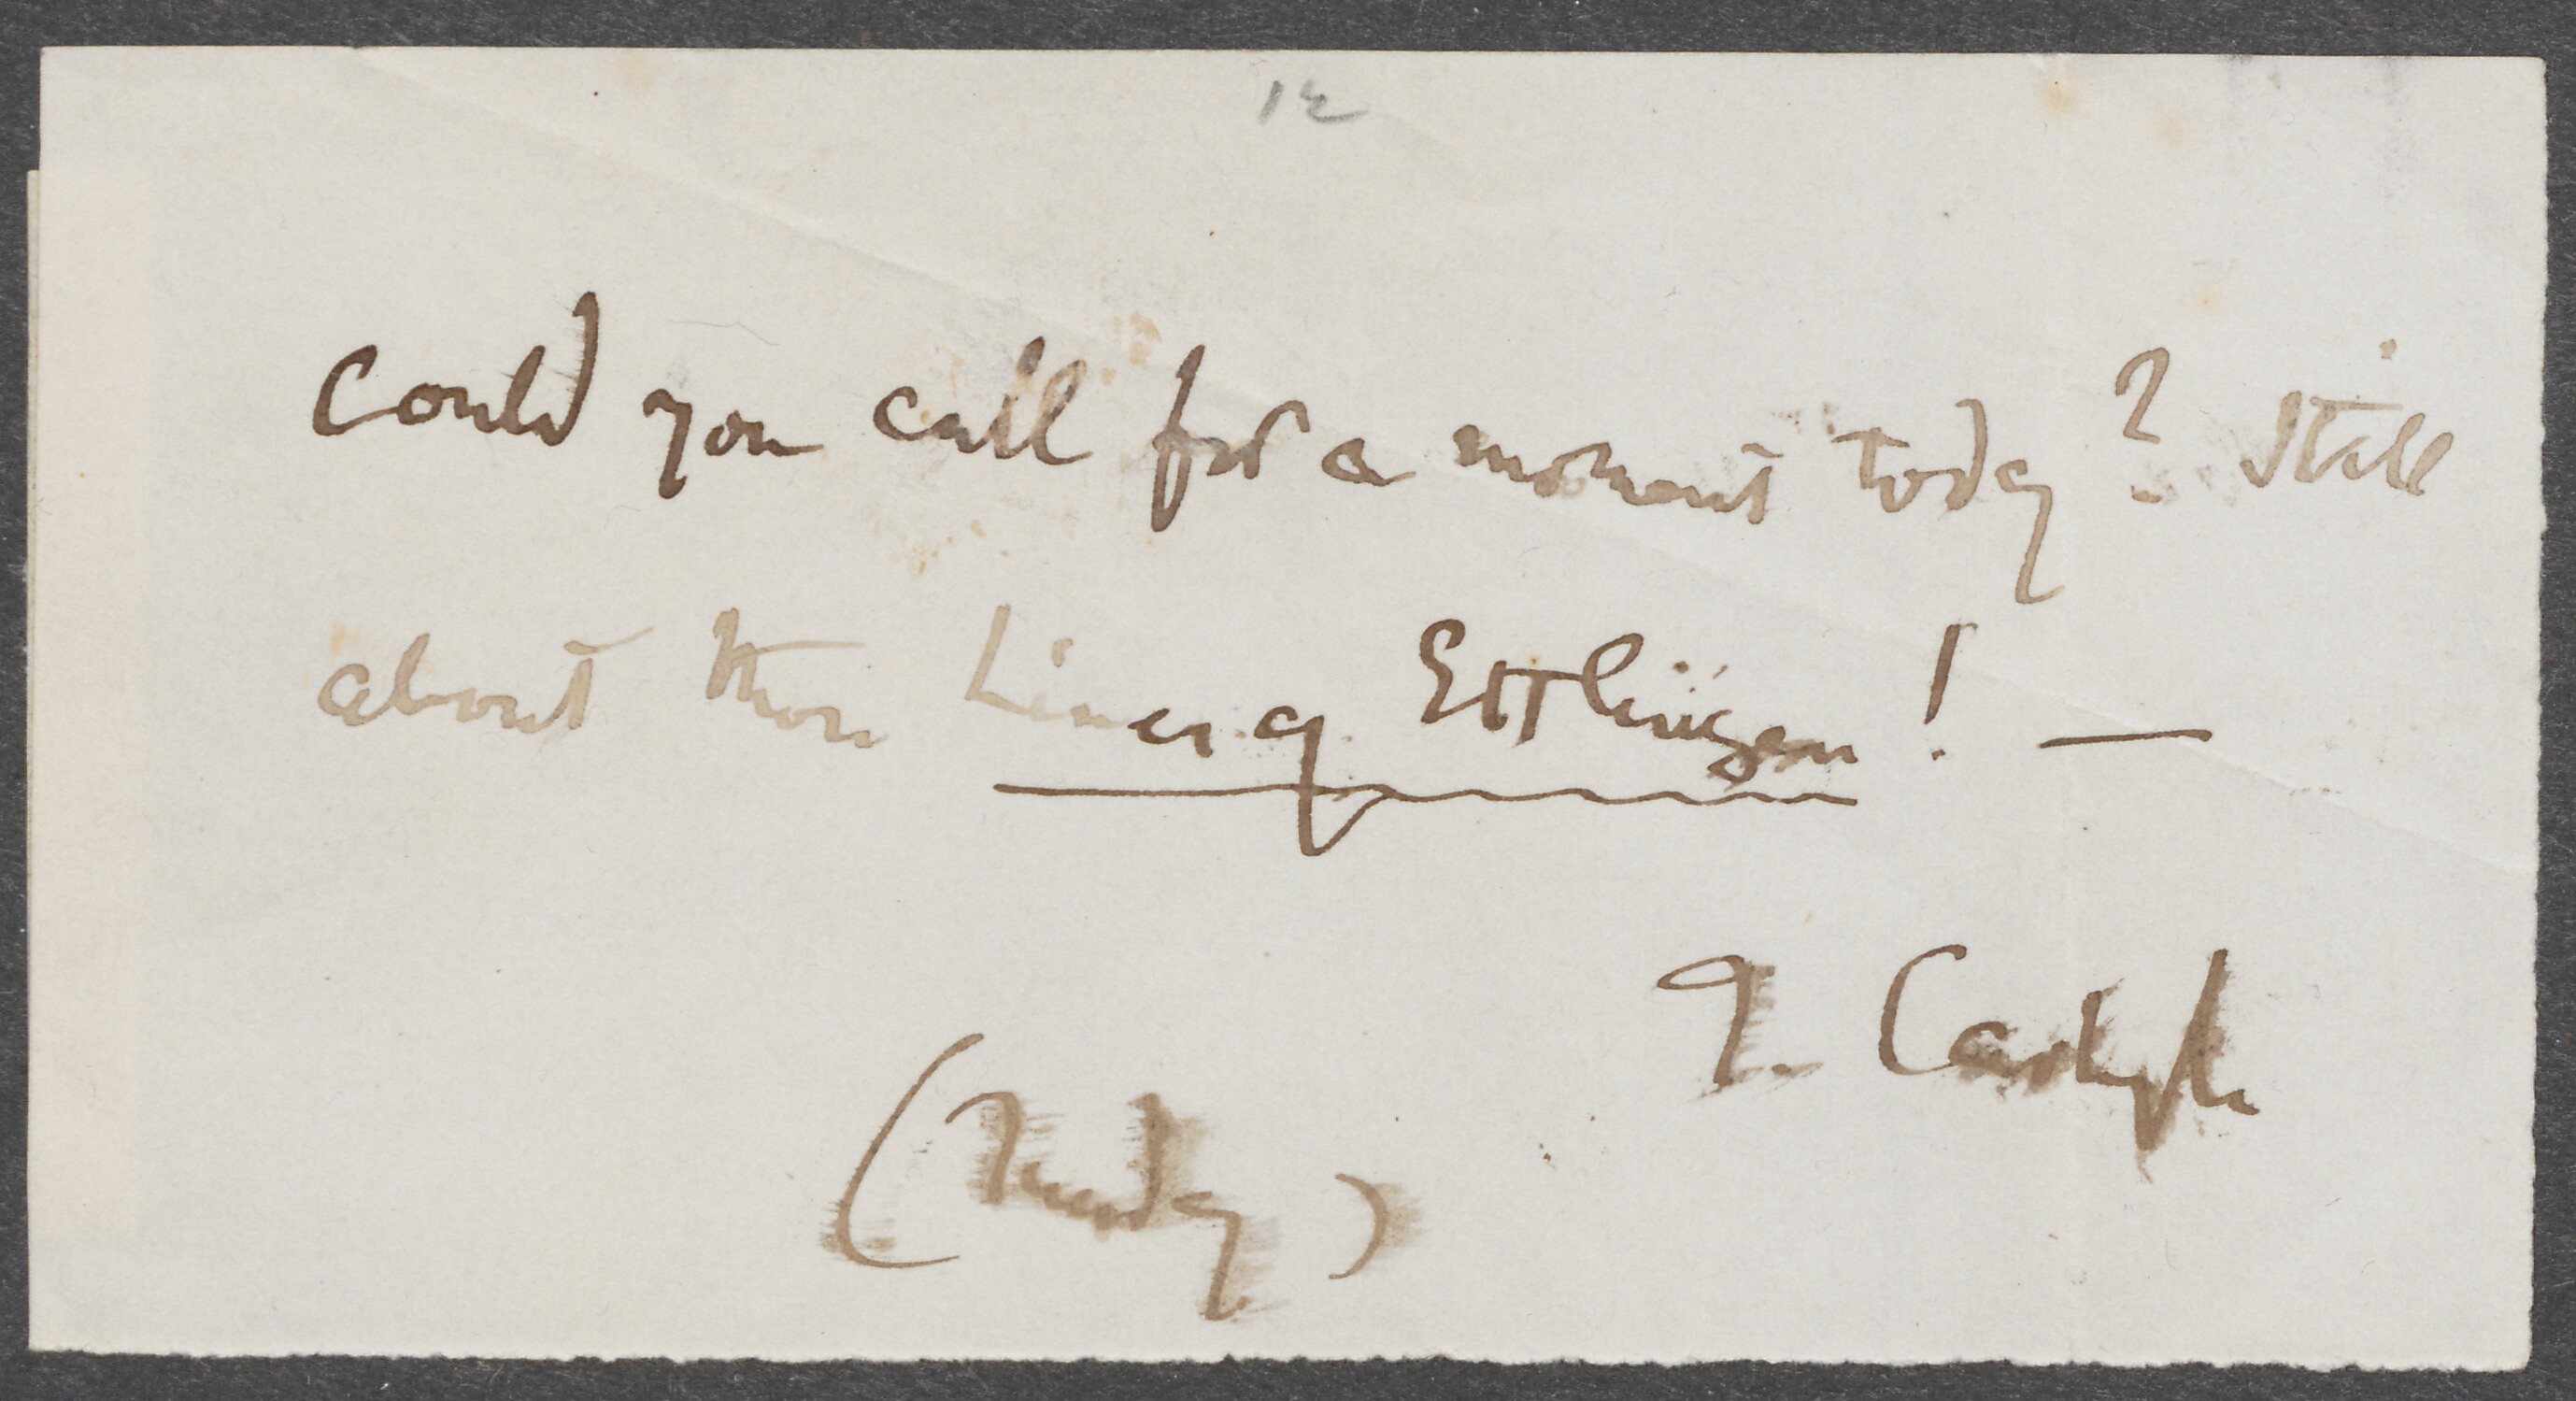 12
Could you call for a moment today? Still
about those Lines of Ettlingen! —
T. Carlyle
(Tuesday)